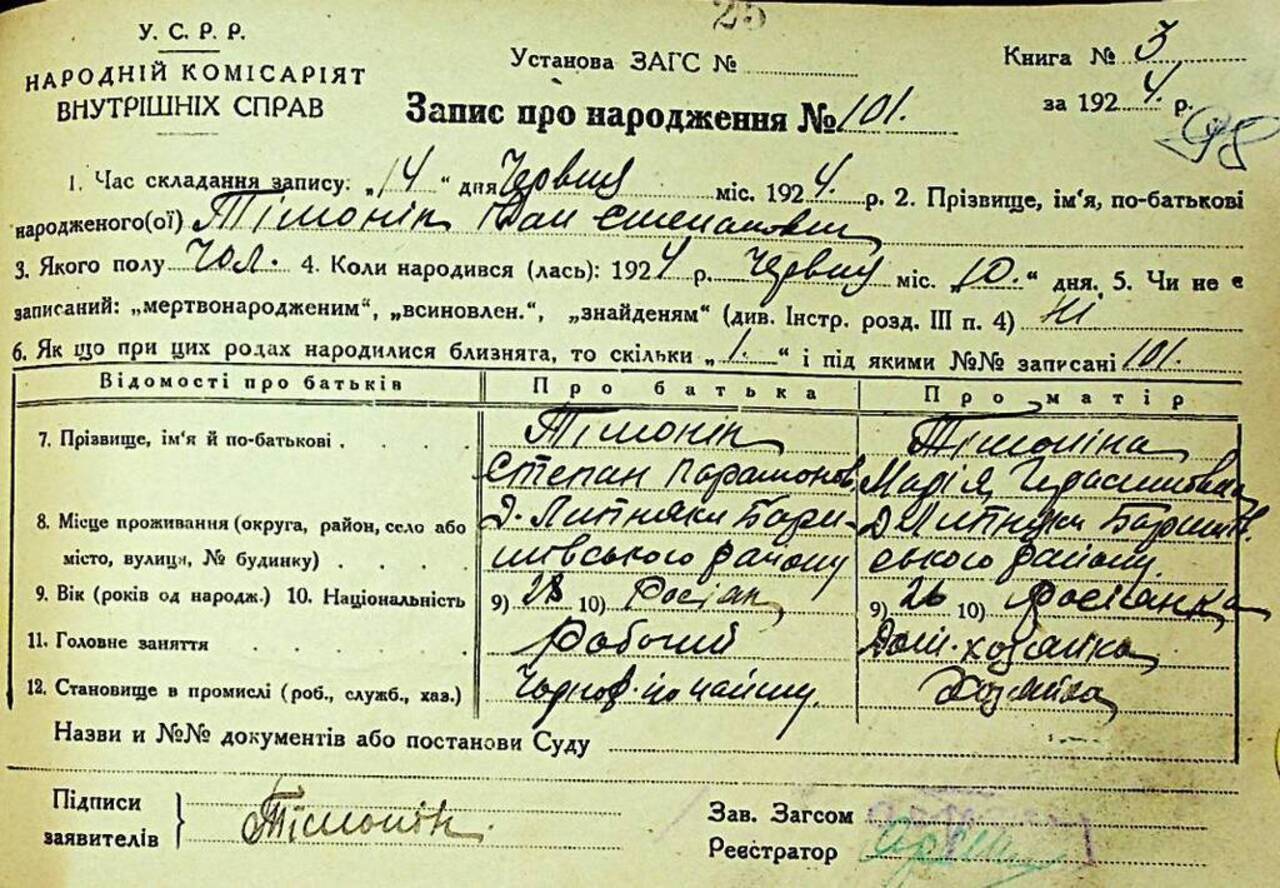 25
У. С. Р. Р.
НАРОДНІЙ КОМІСАРІЯТ
ВНУТРІШНІХ СПРАВ
Установа ЗАГС №
Запис про народження № 101.
Книга № 3
за 1924 р.
98
1. Час складання запису: „14“ дня Червця міс. 1924 р. 2. Прізвище, ім'я, по-батькові
народженого(ої) Тімонін Іван Степанович
3. Якого полу чол. 4. Коли народився (лась): 1924 р. Червця міс. „10.“ дня. 5. Чи не є
записаний: „мертвонародженим“, „всиновлен.“, „знайденям“ (див. Інстр. розд. III п. 4) Ні
6. Як що при цих родах народилися близнята, то скільки „1.“ і під якими №№ записані 101.
Відомості про батьків Про батька Про матір
7. Прізвище, ім'я й по-батькові Тімонін Тімоніна
Степан Парамонов. Марія Герасимовна
8. Місце проживання (округа, район, село або Д. Липняки Бари- Д Липняки Баришів.
місто, вулиця, № будинку) шівського району ського району.
9. Вік (років од народж.) 10. Національність 9) 28 10) Росіян 9) 26 10) Росіянка
11. Головне заняття Робочий Дом. хозяйка
12. Становище в промислі (роб., служб., хаз.) Чорнор. по найму. Хозяйка
Назви и №№ документів або постанови Суду
Підписи
заявителів
Тімонін.
Зав. Загсом
Реєстратор